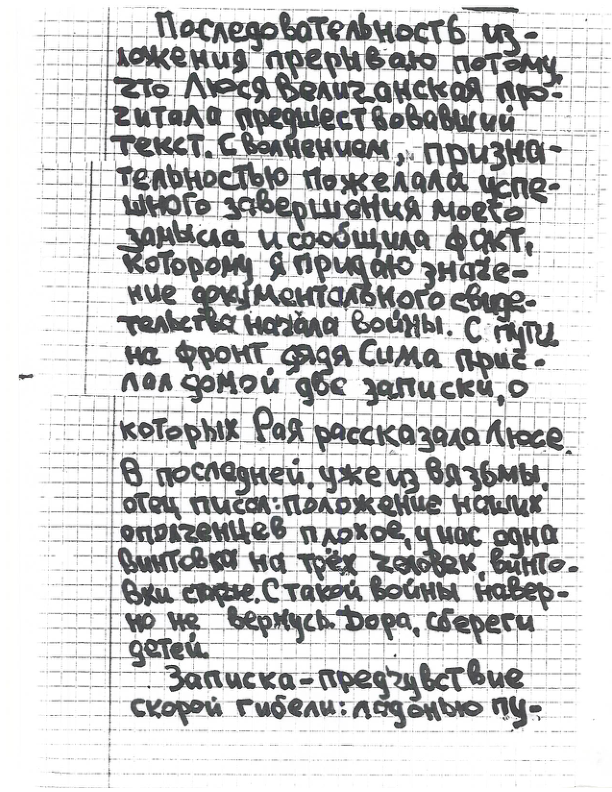 Последовательность из-
ложения прерываю потому,
что Люся Величанская про-
читала предшествовавший
текст. С волнением, призна-
тельностью пожелала успе-
шного завершения моего
замысла и сообщила факт,
которому я придаю значе-
ние документального свиде-
тельства начала войны. С пути
на фронт дядя Сима прис-
лал домой две записки, о
которых Рая рассказала Люсе.
В последней, уже из Вязьмы,
отец писал: положение наших
ополченцев плохое, у нас одна
винтовка на трёх человек, винто-
вки старые. С такой войны навер-
но не вернусь. Дора, сбереги
детей.
Записка-предчувствие
скорой гибели: ладонью пу-